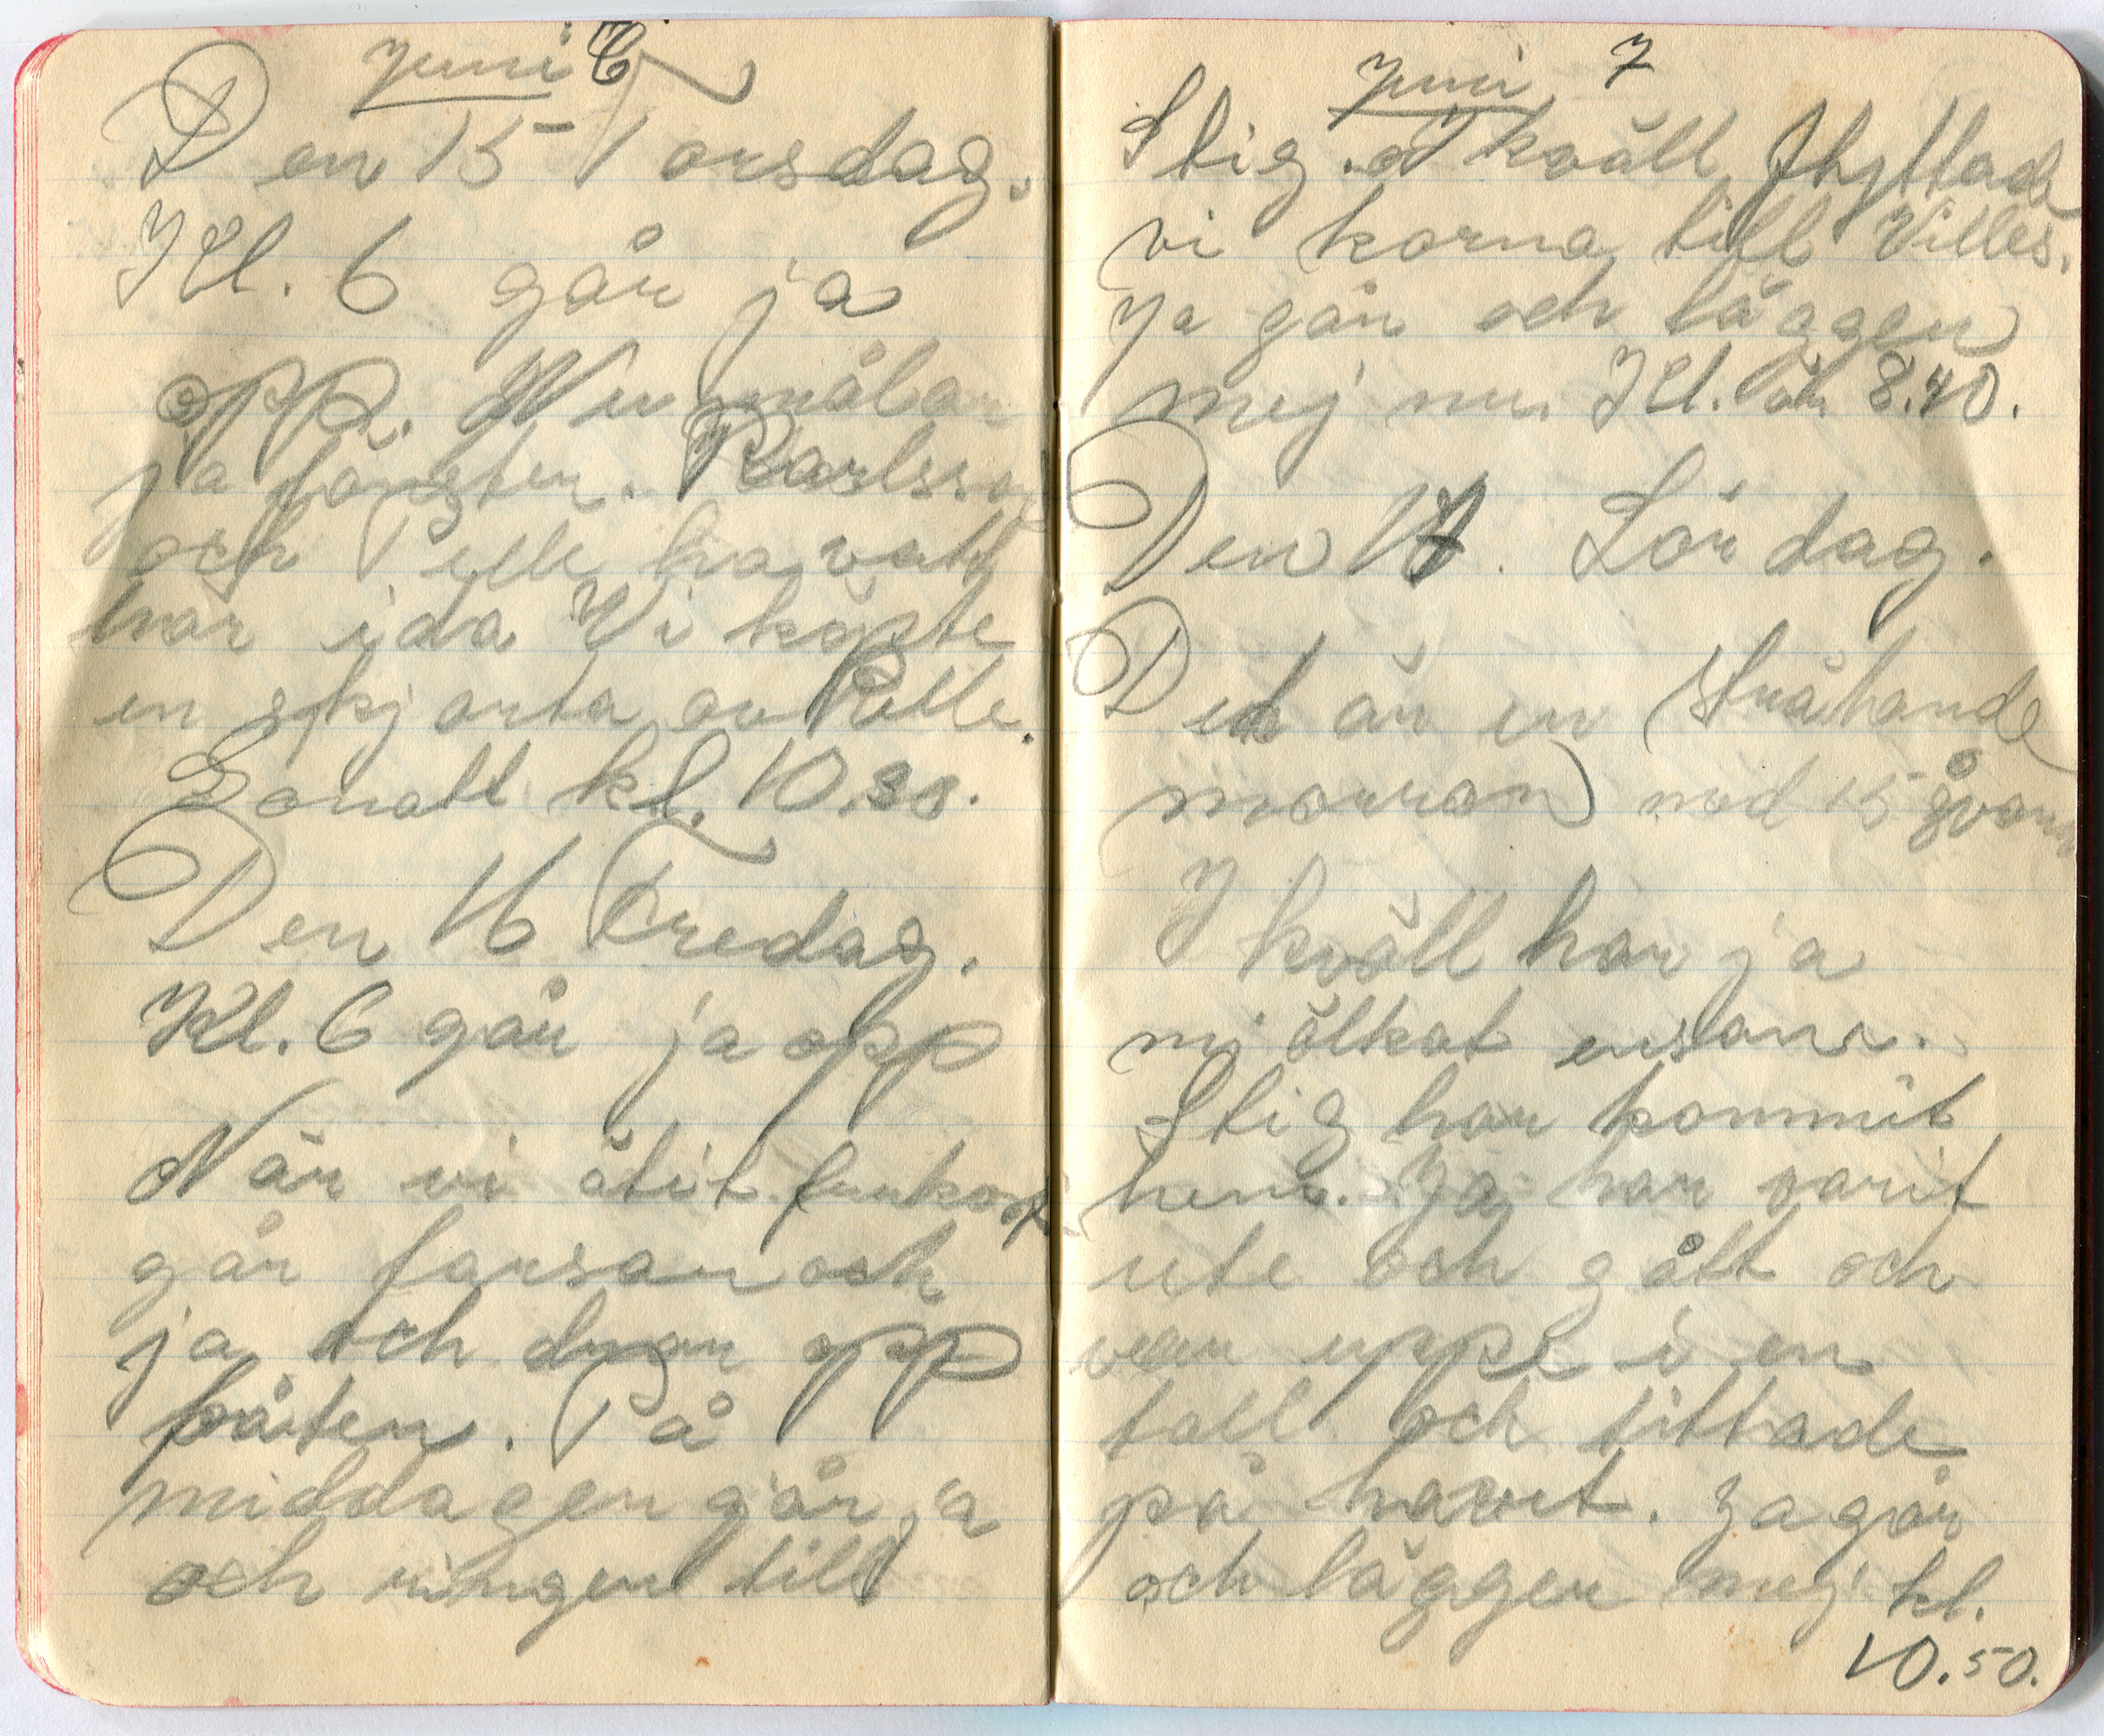 Juni 6
Den 15 Torsdag.
Kl. 6 går ja
opp. Nu målar
ja fönster. Karlsson
och Pelle ha vatt
här ida Vi köpte
en skjorta av Pelle.
Gonatt kl. 10.30.
Den 16 Fredag.
Kl. 6 går ja opp
När vi ätit frukost
går farsan och
ja och drar opp
båten. På
middagen går ja
och ringer till
Juni 7
Stig. I kväll flyttade
vi korna till Villes.
Ja går och lägger
mej nu. Kl. är 8.40.
Den 17. Lördag.
Det är en strålande
morron med 15 g varmt
I kväll har ja
mjölkat ensam.
Stig har kommit
hem. Ja har varit
ute och gått och
var uppe i en
tall och tittade
på havet. Ja går
och lägger mej kl.
10.50.